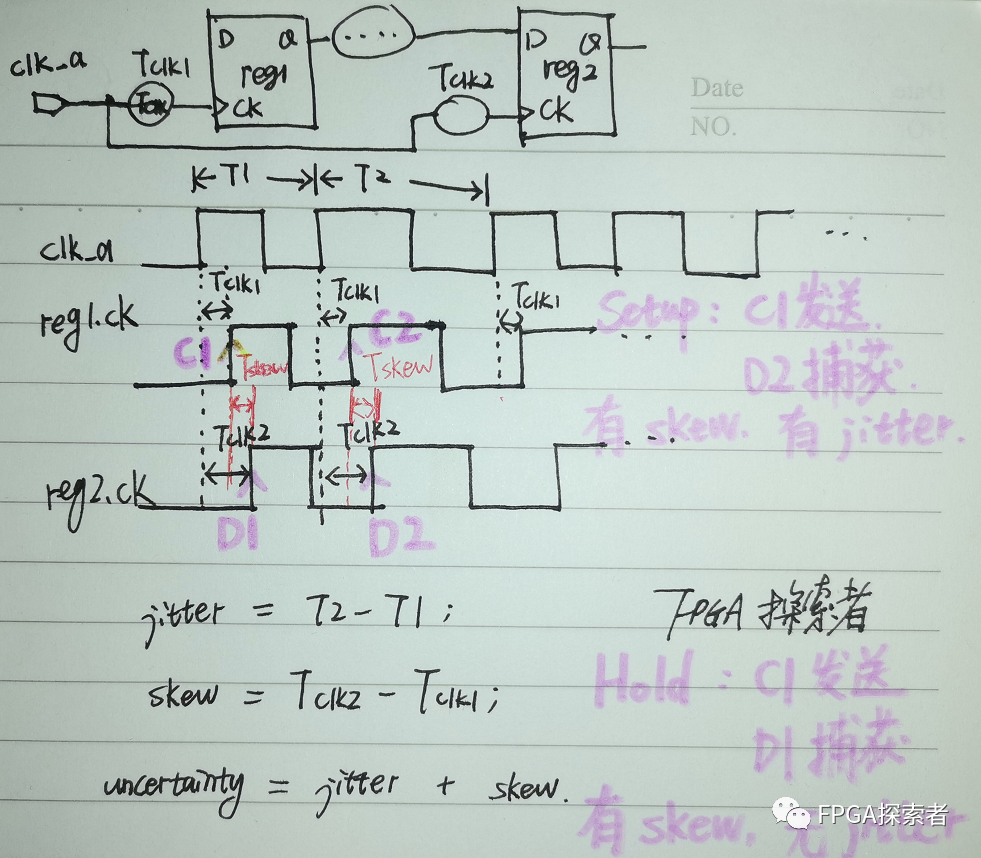 clk_a
Tclk1
D Q
reg1
CK
Tclk2
D Q
reg2
CK
Date
NO.
T1 T2
clk_a
...
Tclk1 Tclk1 Tclk1
reg1.ck
C1 C2
Tskew Tskew
...
Setup: C1发送.
D2捕获.
有skew. 有jitter.
Tclk2 Tclk2
...
reg2.ck
D1 D2
jitter = T2 - T1;
FPGA 探索者
skew = Tclk2 - Tclk1;
Hold: C1发送
D1捕获
uncertainty = jitter + skew.
有skew, 无jitter
FPGA探索者